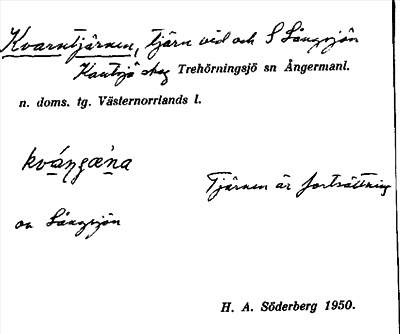 Kvarntjärnen, tjärn vid och S Långsjön
Trehörningsjö sn Ångermanl.
n. doms. tg. Västernorrlands l.
Tjärnen är fortsättning
av Långsjön
H. A. Söderberg 1950.